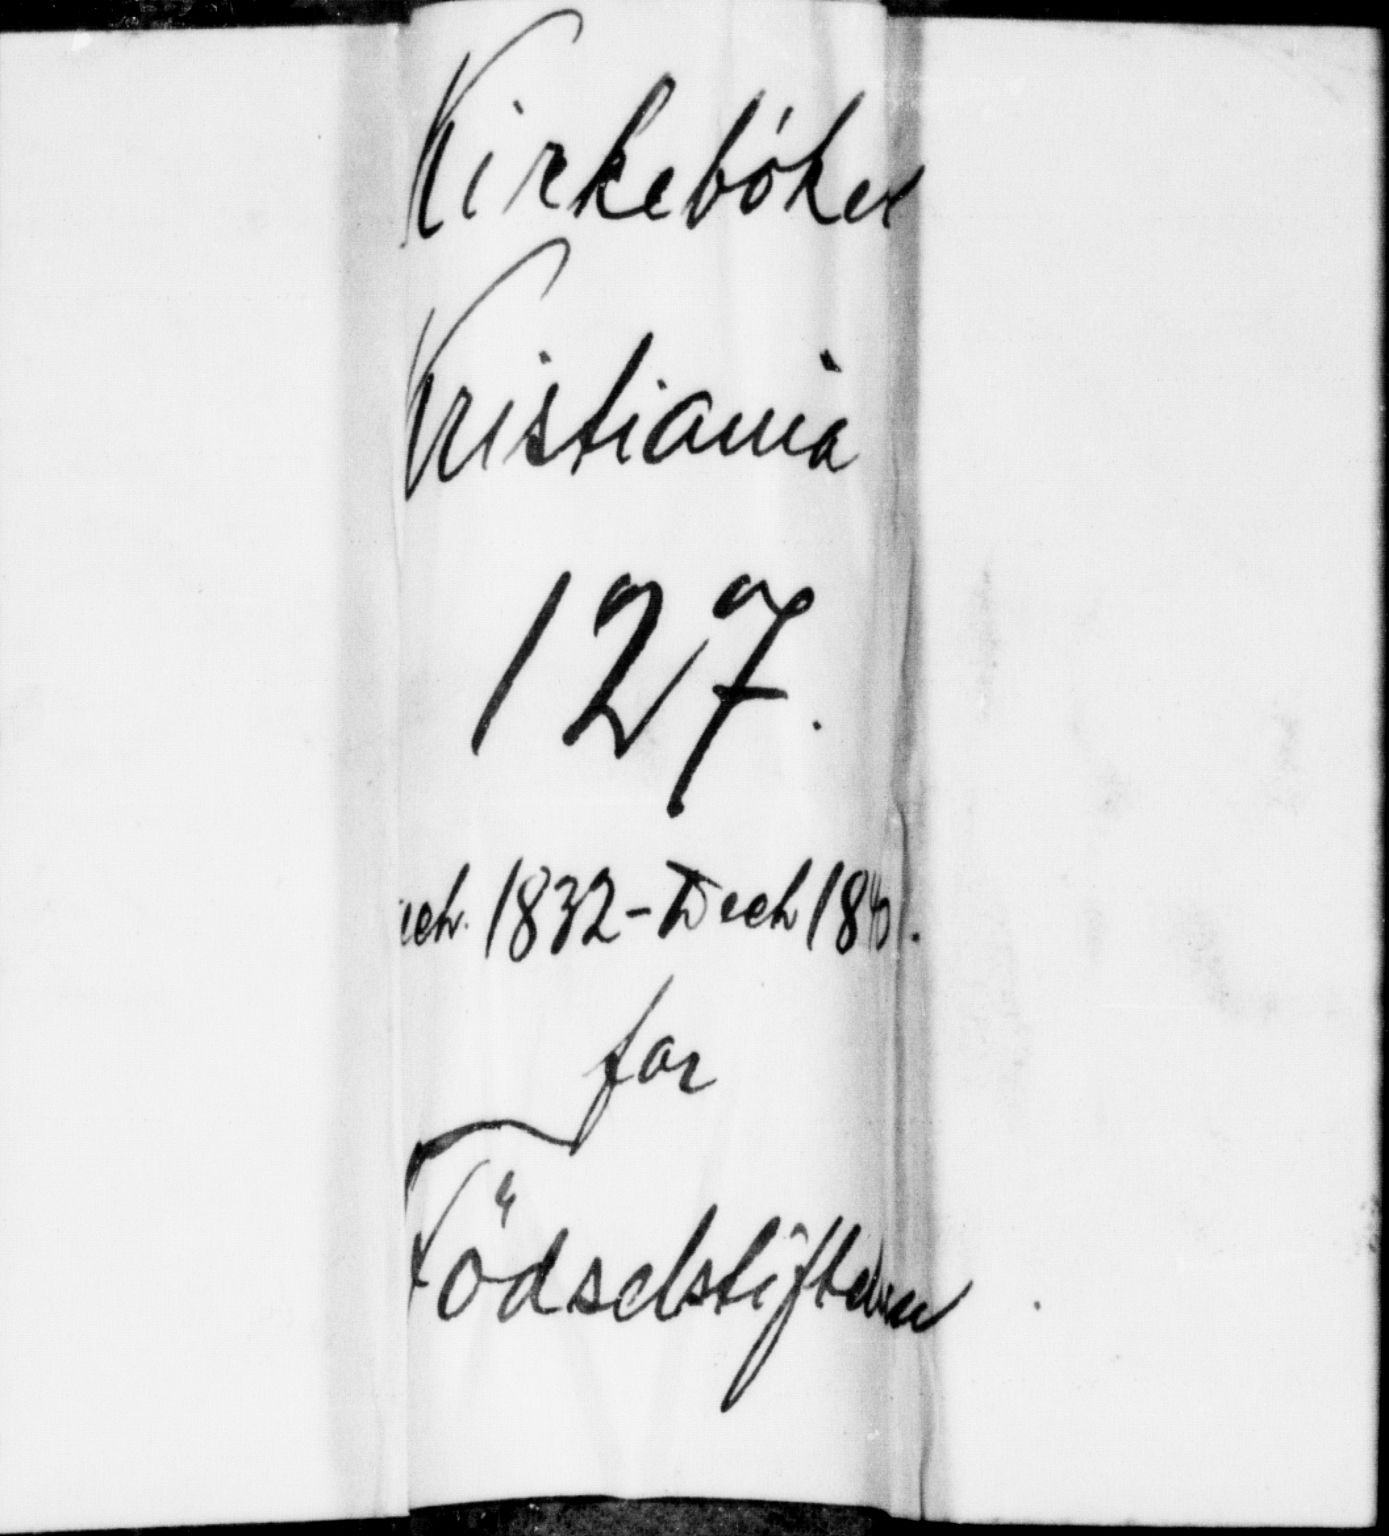 Kirkebóker
Kristiania
127.
ech. 1832 - Dech 1840.
for
Födselstiftelsen